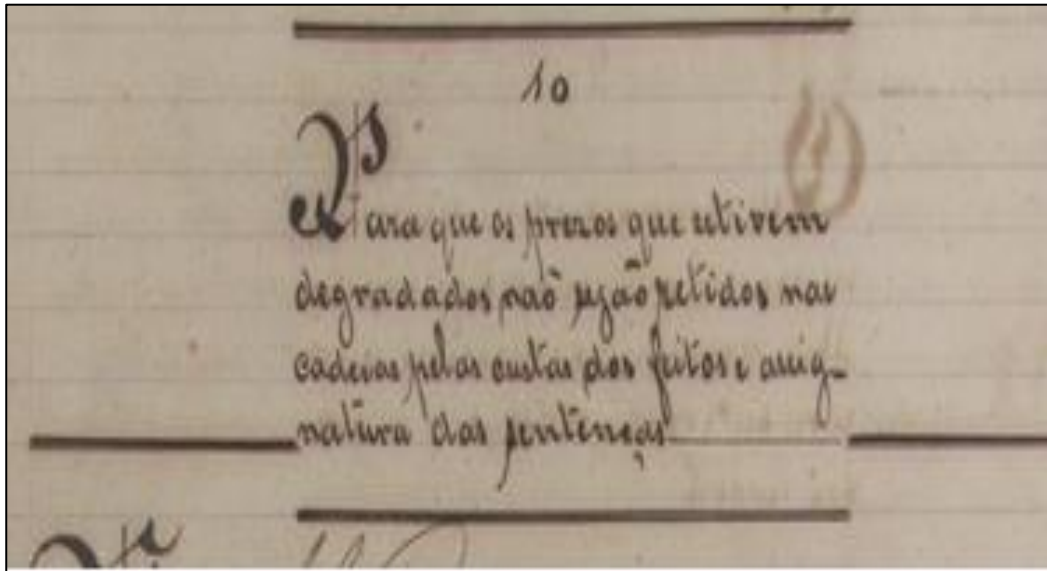 10
Para que os prezos que estivem
degradados não sejão retidos nas
cadeias pelas custas dos feitos e assig-
natura das sentenças